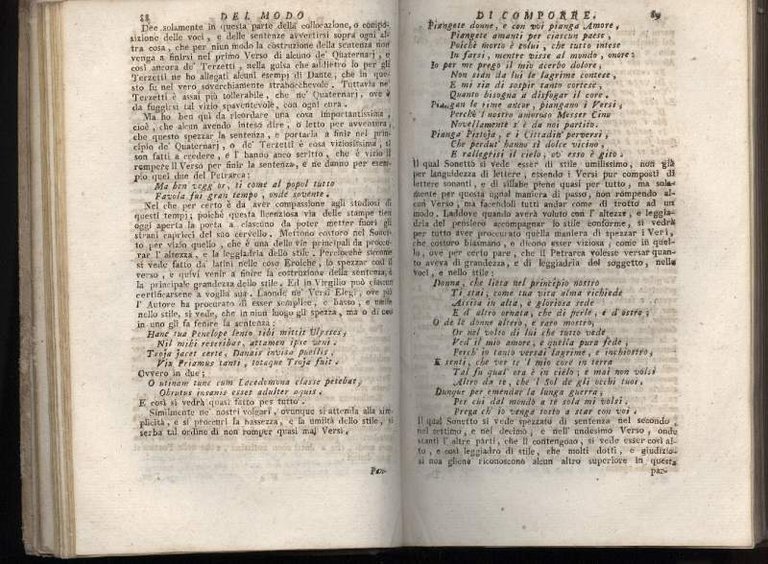 88 DEL MODO
Dee solamente in questa parte della collocazione, o compo-
sizione delle voci, e delle sentenze avvertirsi sopra ogni al-
tra cosa, che per niun modo la costruzione della sentenza non
venga a finirsi nel primo Verso di alcuno de' Quaternarj, e
così ancora de' Terzetti, nella guisa che addietro lo per gli
Terzetti ne ho allegati alcuni esempj di Dante, che in que-
sto fu nel vero soverchiamente strabocchevole. Tuttavia ne'
Terzetti è assai più tollerabile, che ne' Quaternarj, ove è
da fuggirsi tal vizio spaventevole, con ogni cura.
Ma ho ben quì da ricordare una cosa importantissima,
cioè, che alcun avendo inteso dire, o letto per avventura,
che questo spezzar la sentenza, e portarla a finir nel prin-
cipio de' Quaternarj, o de' Terzetti è cosa viziosissima, si
son fatti a credere, e l' hanno anco scritto, che è vizio il
rompere il Verso per finir la sentenza, e ne danno per esem-
pio quei due del Petrarca:
Ma ben vegg'or, sì come al popol tutto
Favola fui gran tempo, onde sovente.
Nel che per certo è da aver compassione agli studiosi di
questi tempi; poichè questa licenziosa via delle stampe tien
oggi aperta la porta a ciascuno da poter metter fuori gli
strani capricci del suo cervello. Mettono costoro nel Sonet-
to per vizio quello, che è una delle vie principali da procu-
rar l' altezza, e la leggiadria dello stile. Perciocchè siccome
si vede fatto da' latini nelle cose Eroiche, lo spezzar così il
verso, e quivi venir a finire la costruzione della sentenza, è
la principale grandezza dello stile. Ed in Virgilio può ciascun
certificarsene a voglia sua. Laonde ne' Versi Elegi, ove poi
l' Autore ha procurato di esser semplice, e basso, e umile
nello stile, si vede, che in niun luogo gli spezza, ma o di due
in uno gli fa fenire la sentenza:
Hanc tua Penelope lento tibi mittit Ulysses,
Nil mihi rescribas, attamen ipse veni.
Troja jacet certe, Danais invisa puellis,
Vix Priamus tanti, totaque Troja fuit.
Ovvero in due;
O utinam tunc cum Lacedemona classe petebat,
Obrutus insanis esset adulter aquis.
E così si vedrà quasi fatto per tutto.
Similmente ne' nostri volgari, ovunque si attenda alla sim-
plicità, e si procuri la bassezza, e la umiltà dello stile, si
serba tal ordine di non romper quasi mai Versi.
Pian-
DI COMPORRE. 89
Piangete donne, e con voi pianga Amore,
Piangete amanti per ciascun paese,
Poichè morto è colui, che tutto intese
In farvi, mentre visse al mondo, onore:
Io per me prego il mio acerbo dolore,
Non sian da lui le lagrime contese,
E mi sia di sospir tanto cortese,
Quanto bisogna a disfogar il core.
Piangan le rime ancor, piangano i Versi,
Perchè 'l nostro amoroso Messer Cino
Novellamente s' è da noi partito.
Pianga Pistoja, e i Cittadin perversi,
Che perdut' hanno sì dolce vicino,
E rallegrisi il cielo, ov' esso è gito.
Il qual Sonetto si vede esser di stile umilissimo, non già
per languidezza di lettere, essendo i Versi pur composti di
lettere sonanti, e di sillabe piene quasi per tutto, ma sola-
mente per questa ogual maniera di passo, non rompendo al-
cun Verso, ma facendoli tutti andar come di trotto ad un
modo. Laddove quando averà voluto con l' altezza, e leggia-
dria del pensiero accompagnar lo stile conforme, si vedrà
per tutto aver procurato quella maniera di spezzar i Versi,
che costoro biasmano, e dicono esser viziosa, come in quel-
lo, ove per certo pare, che il Petrarca volesse versar quan-
to aveva di grandezza, e di leggiadria del soggetto, nelle
voci, e nello stile:
Donna, che lieta nel principio nostro
Ti stai, come tua vita alma richiede
Assisa in alta, e gloriosa sede
E d' altro ornata, che di perle, e d' ostro;
O de le donne altero, e raro mostro,
Or nel volto di lui che tutto vede
Ved il mio amore, e quella pura fede,
Perch'io tanto versai lagrime, e inchiostro,
E senti, che ver te 'l mio core in terra
Tal fu qual' ora è in cielo; e mai non volsi
Altro da te, che 'l Sol de gli occhi tuoi.
Dunque per emendar la lunga guerra,
Per cui dal mondo a te sola mi volsi,
Prega ch'io venga tosto a star con voi.
Il qual Sonetto si vede spezzato di sentenza nel secondo,
nel settimo, e nel decimo, e nell' undesimo Verso, onde
stanti l' altre parti, che il contengono, si vede esser così al-
to, e così leggiadro di stile, che molti dotti, e giudizio-
si non gliene riconoscono alcun altro superiore in questa
par-